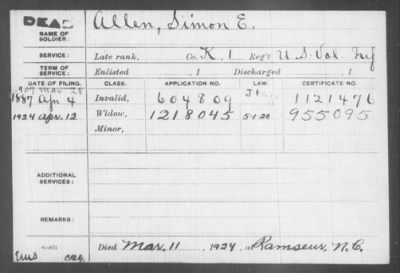 DEAD
NAME OF SOLDIER: Allen, Simon E.
SERVICE: Late rank, Co. K. 1 Reg't U.S. Vol. Inf
TERM OF SERVICE: Enlisted , 1 Discharged , 1
DATE OF FILING. CLASS. APPLICATION NO. LAW. CERTIFICATE NO.
1907 Mar 28
1887 Apr 4 Invalid, 604809 1121471
1924 Apr. 12 Widow, 1218045 5-1-20 955095
Minor,
ADDITIONAL SERVICES:
REMARKS:
Died Mar. 11, 1924, at Ramseur, N.C.